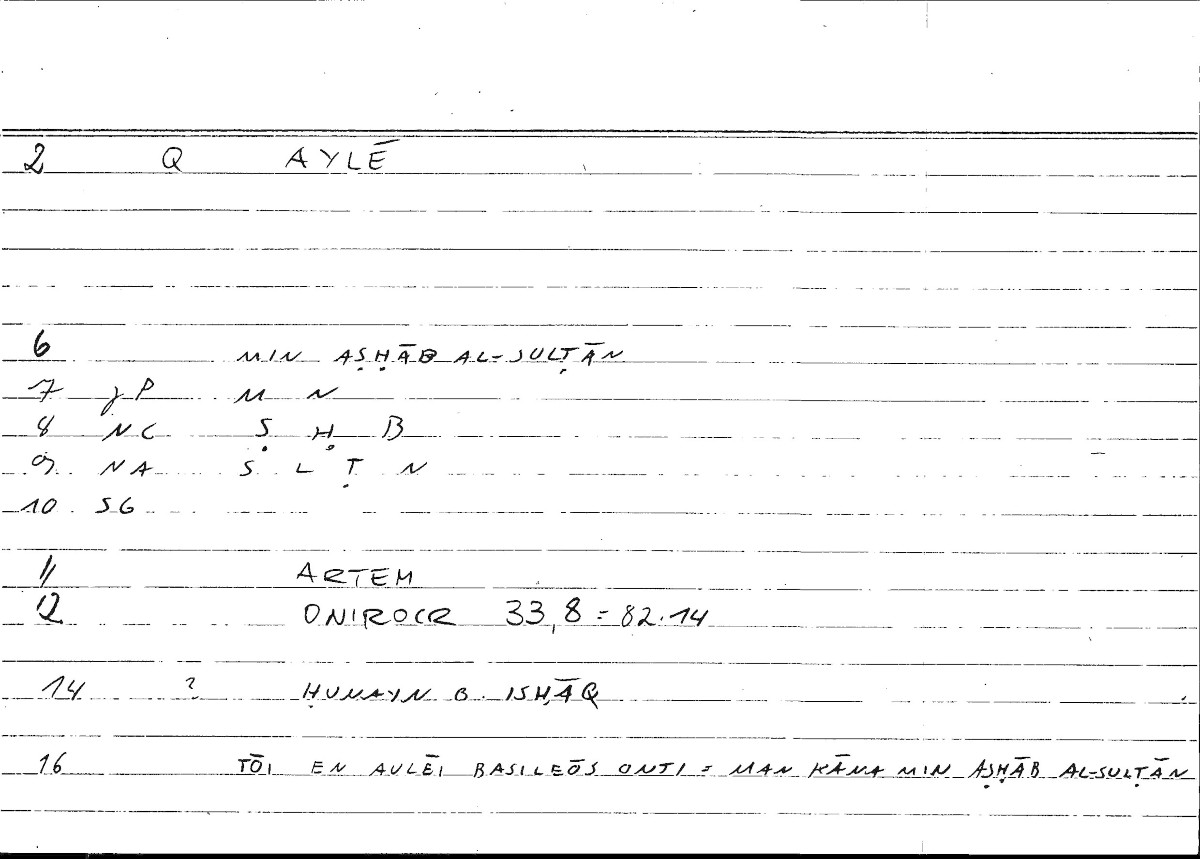 2 Q AYLĒ
6 MIN AṢḤĀB AL-SULṬĀN
7 gP M N
8 NC Ṣ Ḥ B
9 NA S L Ṭ N
10 SG
11 ARTEM
12 ONIROCR 33,8 = 82.14
14 ? ḤUNAYN B. ISḤĀQ
16 TŌI EN AULĒI BASILEŌS ONTI = MAN KĀNA MIN AṢḤĀB AL-SULṬĀN